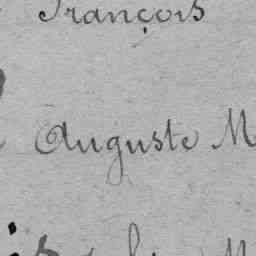 François
Auguste M